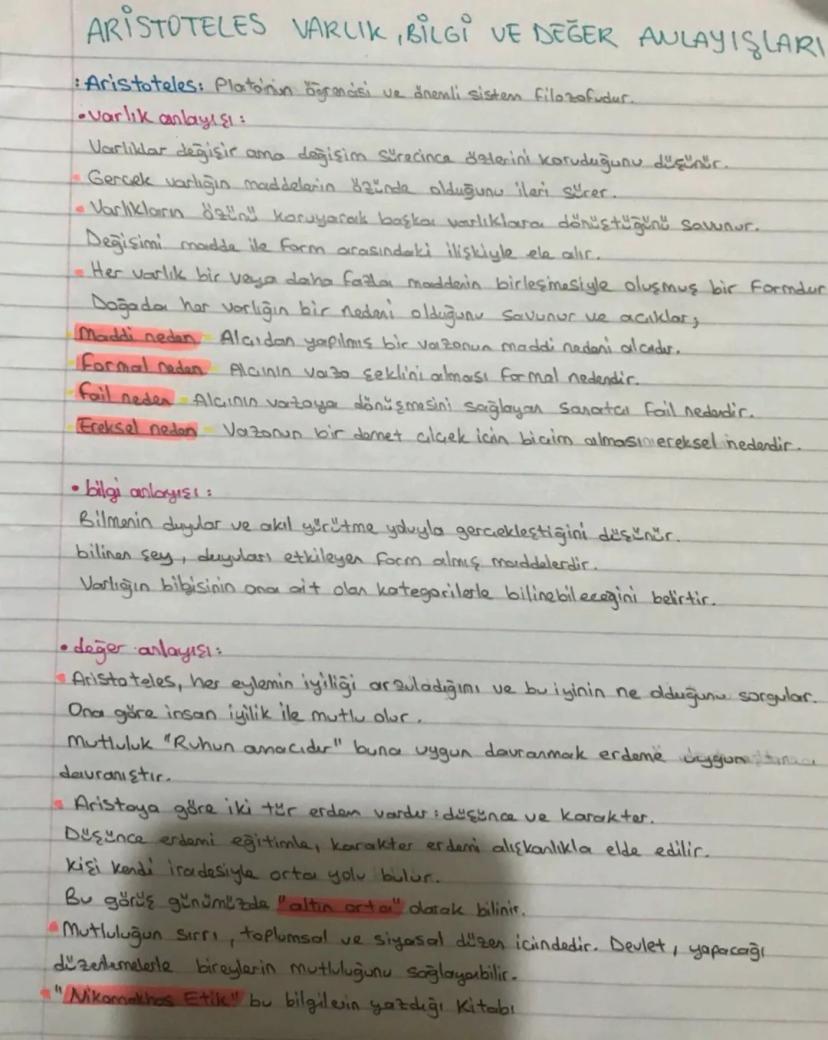 ARİSTOTELES VARLIK, BİLGİ VE DEĞER ANLAYIŞLARI
: Aristoteles: Platon'un öğrencisi ve önemli sistem filozofudur.
• varlık anlayışı :
Varlıklar değişir ama değişim sürecince özlerini koruduğunu düşünür.
• Gerçek varlığın maddelerin özünde olduğunu ileri sürer.
• Varlıkların özünü koruyarak başka varlıklara dönüştüğünü savunur.
Değişimi madde ile form arasındaki ilişkiyle ele alır.
• Her varlık bir veya daha fazla maddenin birleşmesiyle oluşmuş bir formdur
Doğada her varlığın bir nedeni olduğunu savunur ve açıklar;
Maddi neden - Alçıdan yapılmış bir vazonun maddi nedeni alçıdır.
Formal neden - Alçının vazo şeklini alması formal nedendir.
Fail neden - Alçının vazoya dönüşmesini sağlayan sanatçı fail nedendir.
Ereksel neden - Vazonun bir demet çiçek için biçim alması ereksel nedendir.
• bilgi anlayışı :
Bilmenin duyular ve akıl yürütme yoluyla gerçekleştiğini düşünür.
bilinen şey, duyuları etkileyen form almış maddelerdir.
Varlığın bilbisinin ona ait olan kategorilerle bilinebileceğini belirtir.
• değer anlayışı :
• Aristoteles, her eylemin iyiliği arzuladığını ve bu iyinin ne olduğunu sorgular.
Ona göre insan iyilik ile mutlu olur.
Mutluluk "Ruhun amacıdır" buna uygun davranmak erdeme uygun
davranıştır.
• Aristoya göre iki tür erdem vardır : düşünce ve karakter.
Düşünce erdemi eğitimle, karakter erdemi alışkanlıkla elde edilir.
Kişi kendi iradesiyle orta yolu bulur.
Bu görüş günümüzde "altın orta" olarak bilinir.
• Mutluluğun sırrı, toplumsal ve siyasal düzen içindedir. Devlet, yapacağı
düzenlemelerle bireylerin mutluluğunu sağlayabilir.
• "Nikomakhos Etik" bu bilgilerin yazdığı kitabı